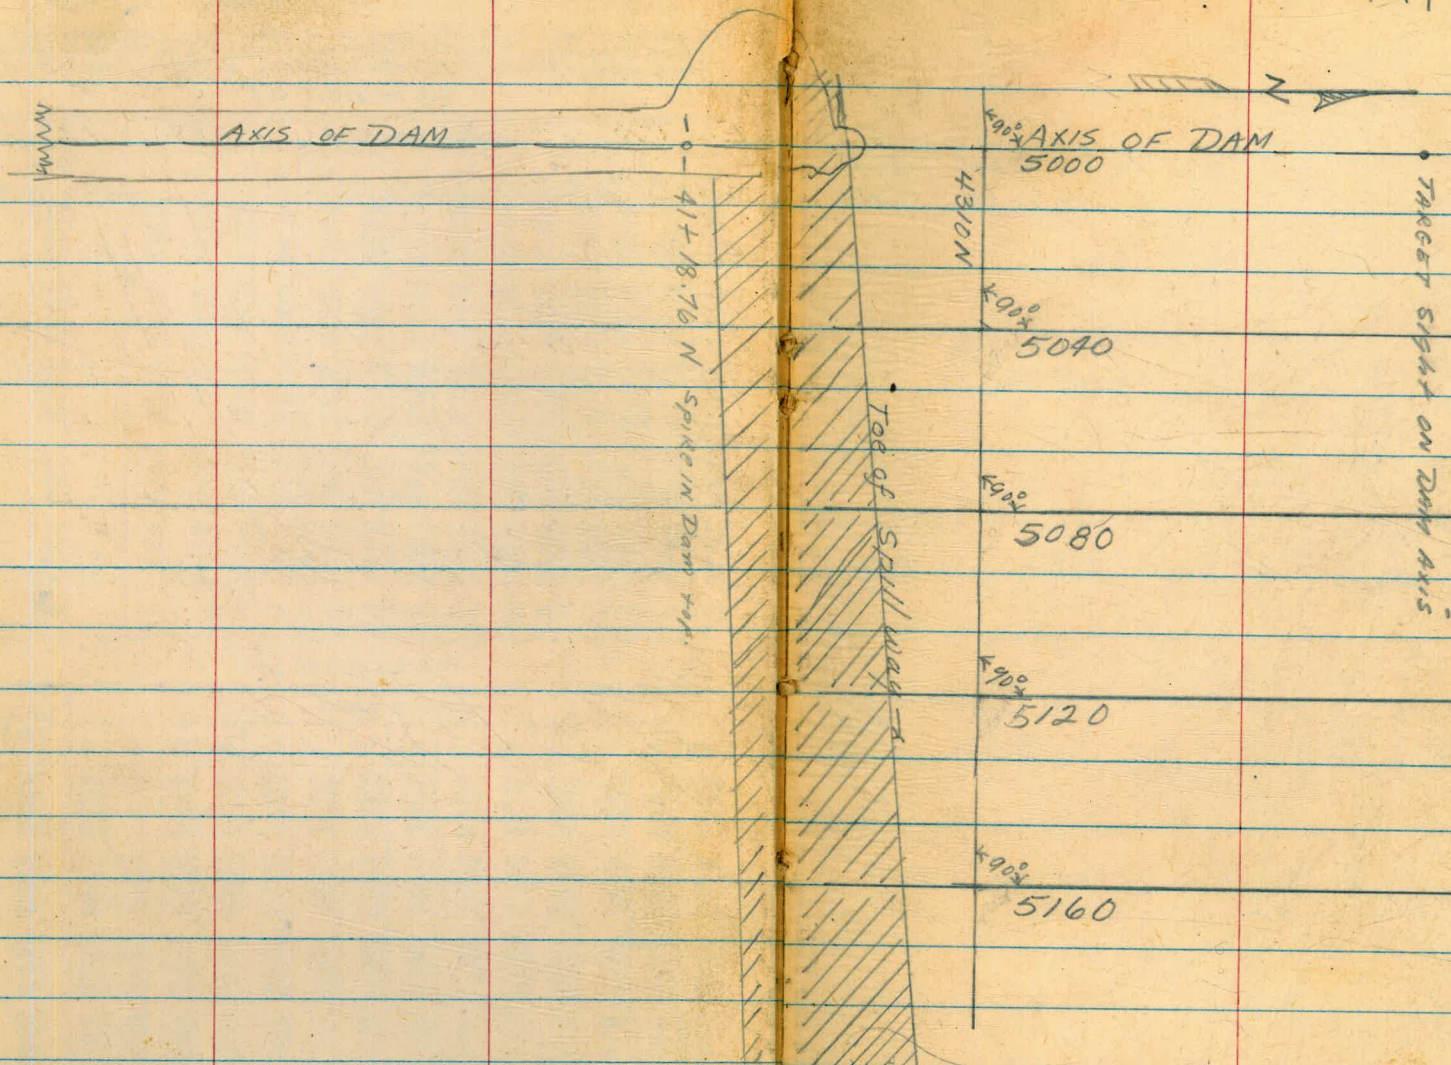 AXIS OF DAM
41+18.76 N Spike in Dam top.
Toe of Spillway
4310N
N
90°
AXIS OF DAM
5000
90°
5040
90°
5080
90°
5120
90°
5160
TARGET SIGHT ON DAM AXIS